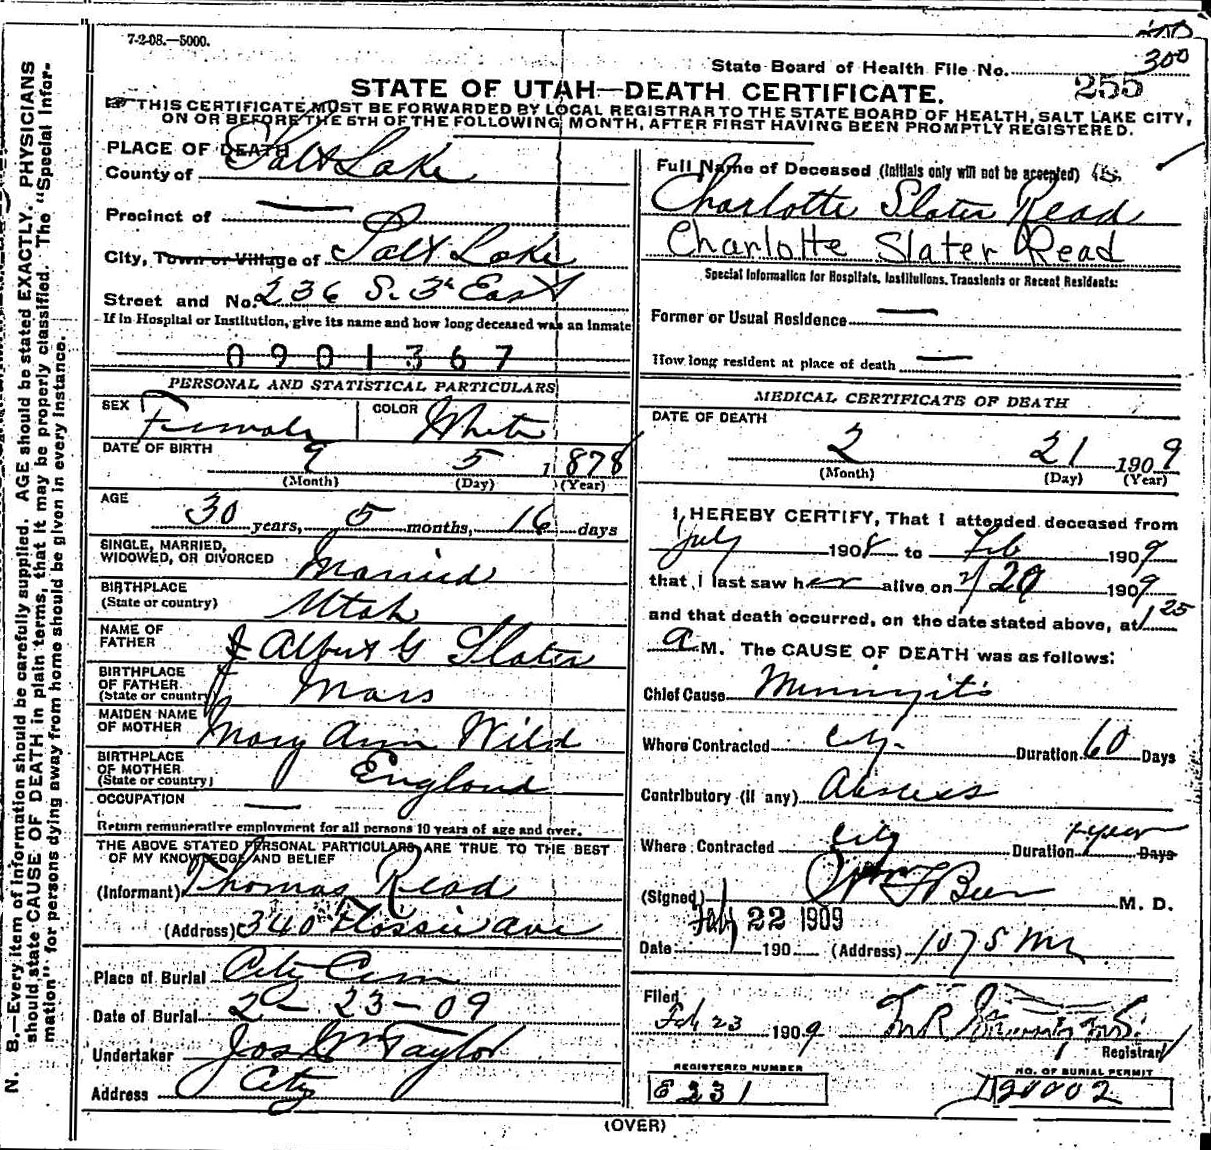 7-2-08.—5000.
300
State Board of Health File No.
255
STATE OF UTAH—DEATH CERTIFICATE.
THIS CERTIFICATE MUST BE FORWARDED BY LOCAL REGISTRAR TO THE STATE BOARD OF HEALTH, SALT LAKE CITY,
ON OR BEFORE THE 5TH OF THE FOLLOWING MONTH, AFTER FIRST HAVING BEEN PROMPTLY REGISTERED.
PLACE OF DEATH
County of Salt Lake
Precinct of —
City, Town or Village of Salt Lake
Street and No. 236 S. 3d East
If in Hospital or Institution, give its name and how long deceased was an inmate
0901367
PERSONAL AND STATISTICAL PARTICULARS
SEX Female COLOR White
DATE OF BIRTH
9 5 1878
(Month) (Day) (Year)
AGE
30 years, 5 months, 16 days
SINGLE, MARRIED,
WIDOWED, OR DIVORCED Married
BIRTHPLACE
(State or country) Utah
NAME OF
FATHER Albert G Slater
BIRTHPLACE
OF FATHER
(State or country) Mass
MAIDEN NAME
OF MOTHER Mary Ann Wild
BIRTHPLACE
OF MOTHER
(State or country) England
OCCUPATION —
Return remunerative employment for all persons 10 years of age and over.
THE ABOVE STATED PERSONAL PARTICULARS ARE TRUE TO THE BEST
OF MY KNOWLEDGE AND BELIEF
(Informant) Thomas Read
(Address) 340 Flossie Ave
Place of Burial City Cem
Date of Burial 2-23-09
Undertaker Jos Wm Taylor
Address City
Full Name of Deceased (Initials only will not be accepted)
Charlotte Slater Read
Charlotte Slater Read
Special Information for Hospitals, Institutions, Transients or Recent Residents:
Former or Usual Residence —
How long resident at place of death —
MEDICAL CERTIFICATE OF DEATH
DATE OF DEATH
2 21 1909
(Month) (Day) (Year)
I, HEREBY CERTIFY, That I attended deceased from
July 1908 to Feb 1909
that I last saw her alive on 2/20 1909
and that death occurred, on the date stated above, at 1 25
A M. The CAUSE OF DEATH was as follows:
Chief Cause Meningitis
Where Contracted City Duration 60 Days
Contributory (if any) Abscess
Where Contracted City Duration 1 year Days
(Signed) Wm F Beer M. D.
Feb 22 1909
Date 190 (Address)
Filed
Feb 23 1909
Registrar
REGISTERED NUMBER
E 231
NO. OF BURIAL PERMIT
D20002
(OVER)
N. B.—Every item of information should be carefully supplied. AGE should be stated EXACTLY. PHYSICIANS
should state CAUSE OF DEATH in plain terms, that it may be properly classified. The "Special Infor-
mation" for persons dying away from home should be given in every instance.